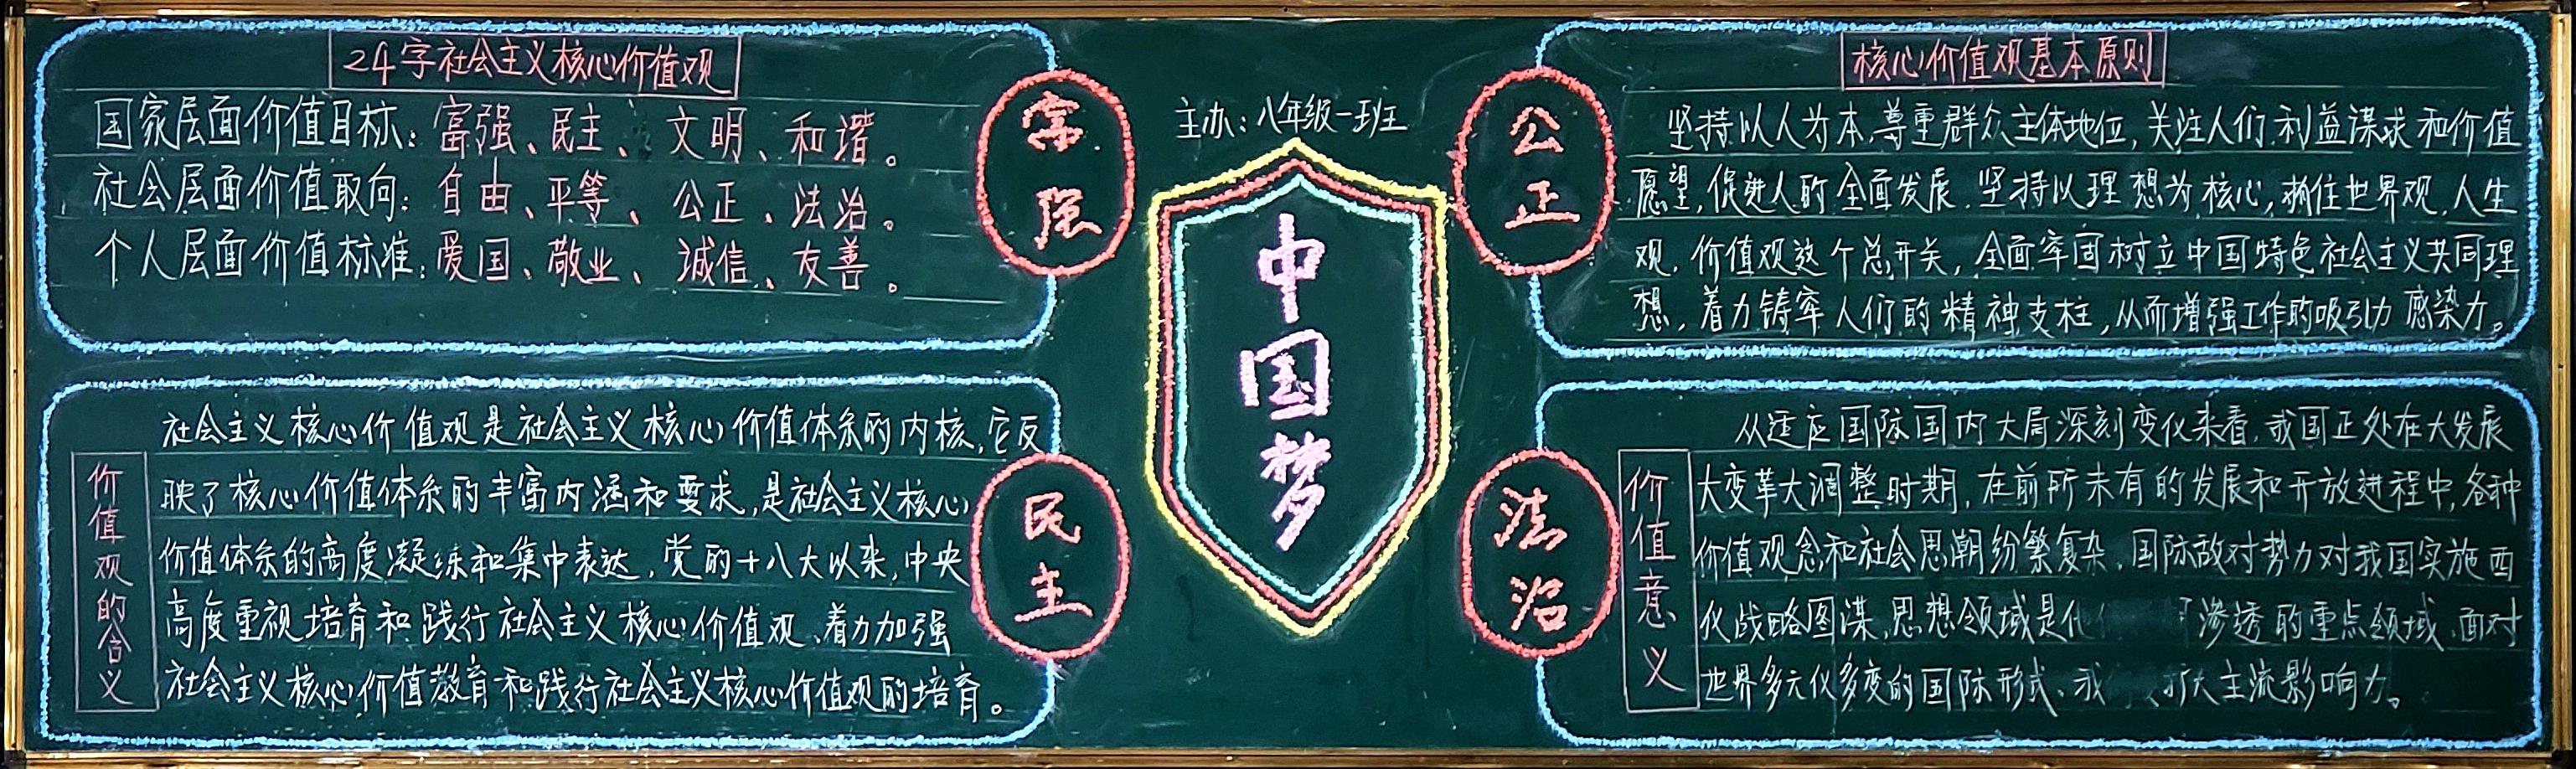 24字社会主义核心价值观
国家层面价值目标：富强、民主、文明、和谐。
社会层面价值取向：自由、平等、公正、法治。
个人层面价值标准：爱国、敬业、诚信、友善。
富强
主办：八年级一班
中国梦
公正
核心价值观基本原则
坚持以人为本，尊重群众主体地位，关注人们利益谋求和价值
愿望，促进人的全面发展，坚持以理想为核心，抓住世界观、人生
观、价值观这个总开关，全面牢固树立中国特色社会主义共同理
想，着力铸牢人们的精神支柱，从而增强工作的吸引力感染力。
价值观的含义
社会主义核心价值观是社会主义核心价值体系的内核，它反
映了核心价值体系的丰富内涵和要求，是社会主义核心
价值体系的高度凝练和集中表达，党的十八大以来，中央
高度重视培育和践行社会主义核心价值观、着力加强
社会主义核心价值教育和践行社会主义核心价值观的培育。
民主
法治
价值意义
从适应国际国内大局深刻变化来看，我国正处在大发展
大变革大调整时期，在前所未有的发展和开放进程中，各种
价值观念和社会思潮纷繁复杂，国际敌对势力对我国实施西
化战略图谋，思想领域是他 渗透的重点领域，面对
世界多元化多变的国际形式、我 大主流影响力。